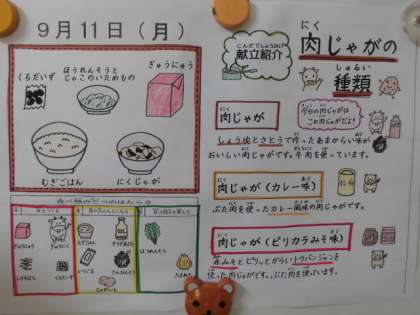 9月11日（月）
くろだいず
ほうれんそうと
じゃこのいためもの
ぎゅうにゅう
むぎごはん
にくじゃが
こんだてしょうかい
献立紹介
にく
肉じゃがの
しゅるい
種類
にく
肉じゃが
今日の肉じゃがは
この肉じゃがだよ！
しょう油とさとうで作ったあまからい味が
おいしい肉じゃがです。牛肉を使っています。
肉じゃが（カレー味）
ぶた肉を使ったカレー風味の肉じゃがです。
肉じゃが（ピリカラみそ味）
赤みそとピリッとからいトウバンジャンを
使った肉じゃがです。ぶた肉を使っています。
ぎゅうにゅう
ぎゅうにく
むぎごはん
ほうれんそう